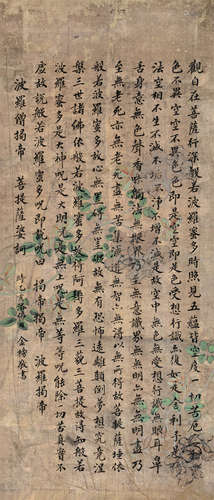 觀自在菩薩行深般若波羅蜜多時照見五蘊皆空度一切苦厄舍利子
色不異空空不異色色即是空空即是色受想行識亦復如是舍利子是諸
法空相不生不滅不垢不淨不增不減是故空中無色無受想行識無眼耳鼻
舌身意無色聲香味觸法無眼界乃至無意識界無無明亦無無明盡乃
至無老死亦無老死盡無苦集滅道無智亦無得以無所得故菩提薩埵依
般若波羅蜜多故心無罣礙無罣礙故無有恐怖遠離顛倒夢想究竟涅
槃三世諸佛依般若波羅蜜多故得阿耨多羅三藐三菩提故知般若
波羅蜜多是大神咒是大明咒是無上咒是無等等咒能除一切苦真實不
虛故說般若波羅蜜多咒即說咒曰 揭帝揭帝 波羅揭帝
波羅僧揭帝 菩提薩婆訶 金榜敬書